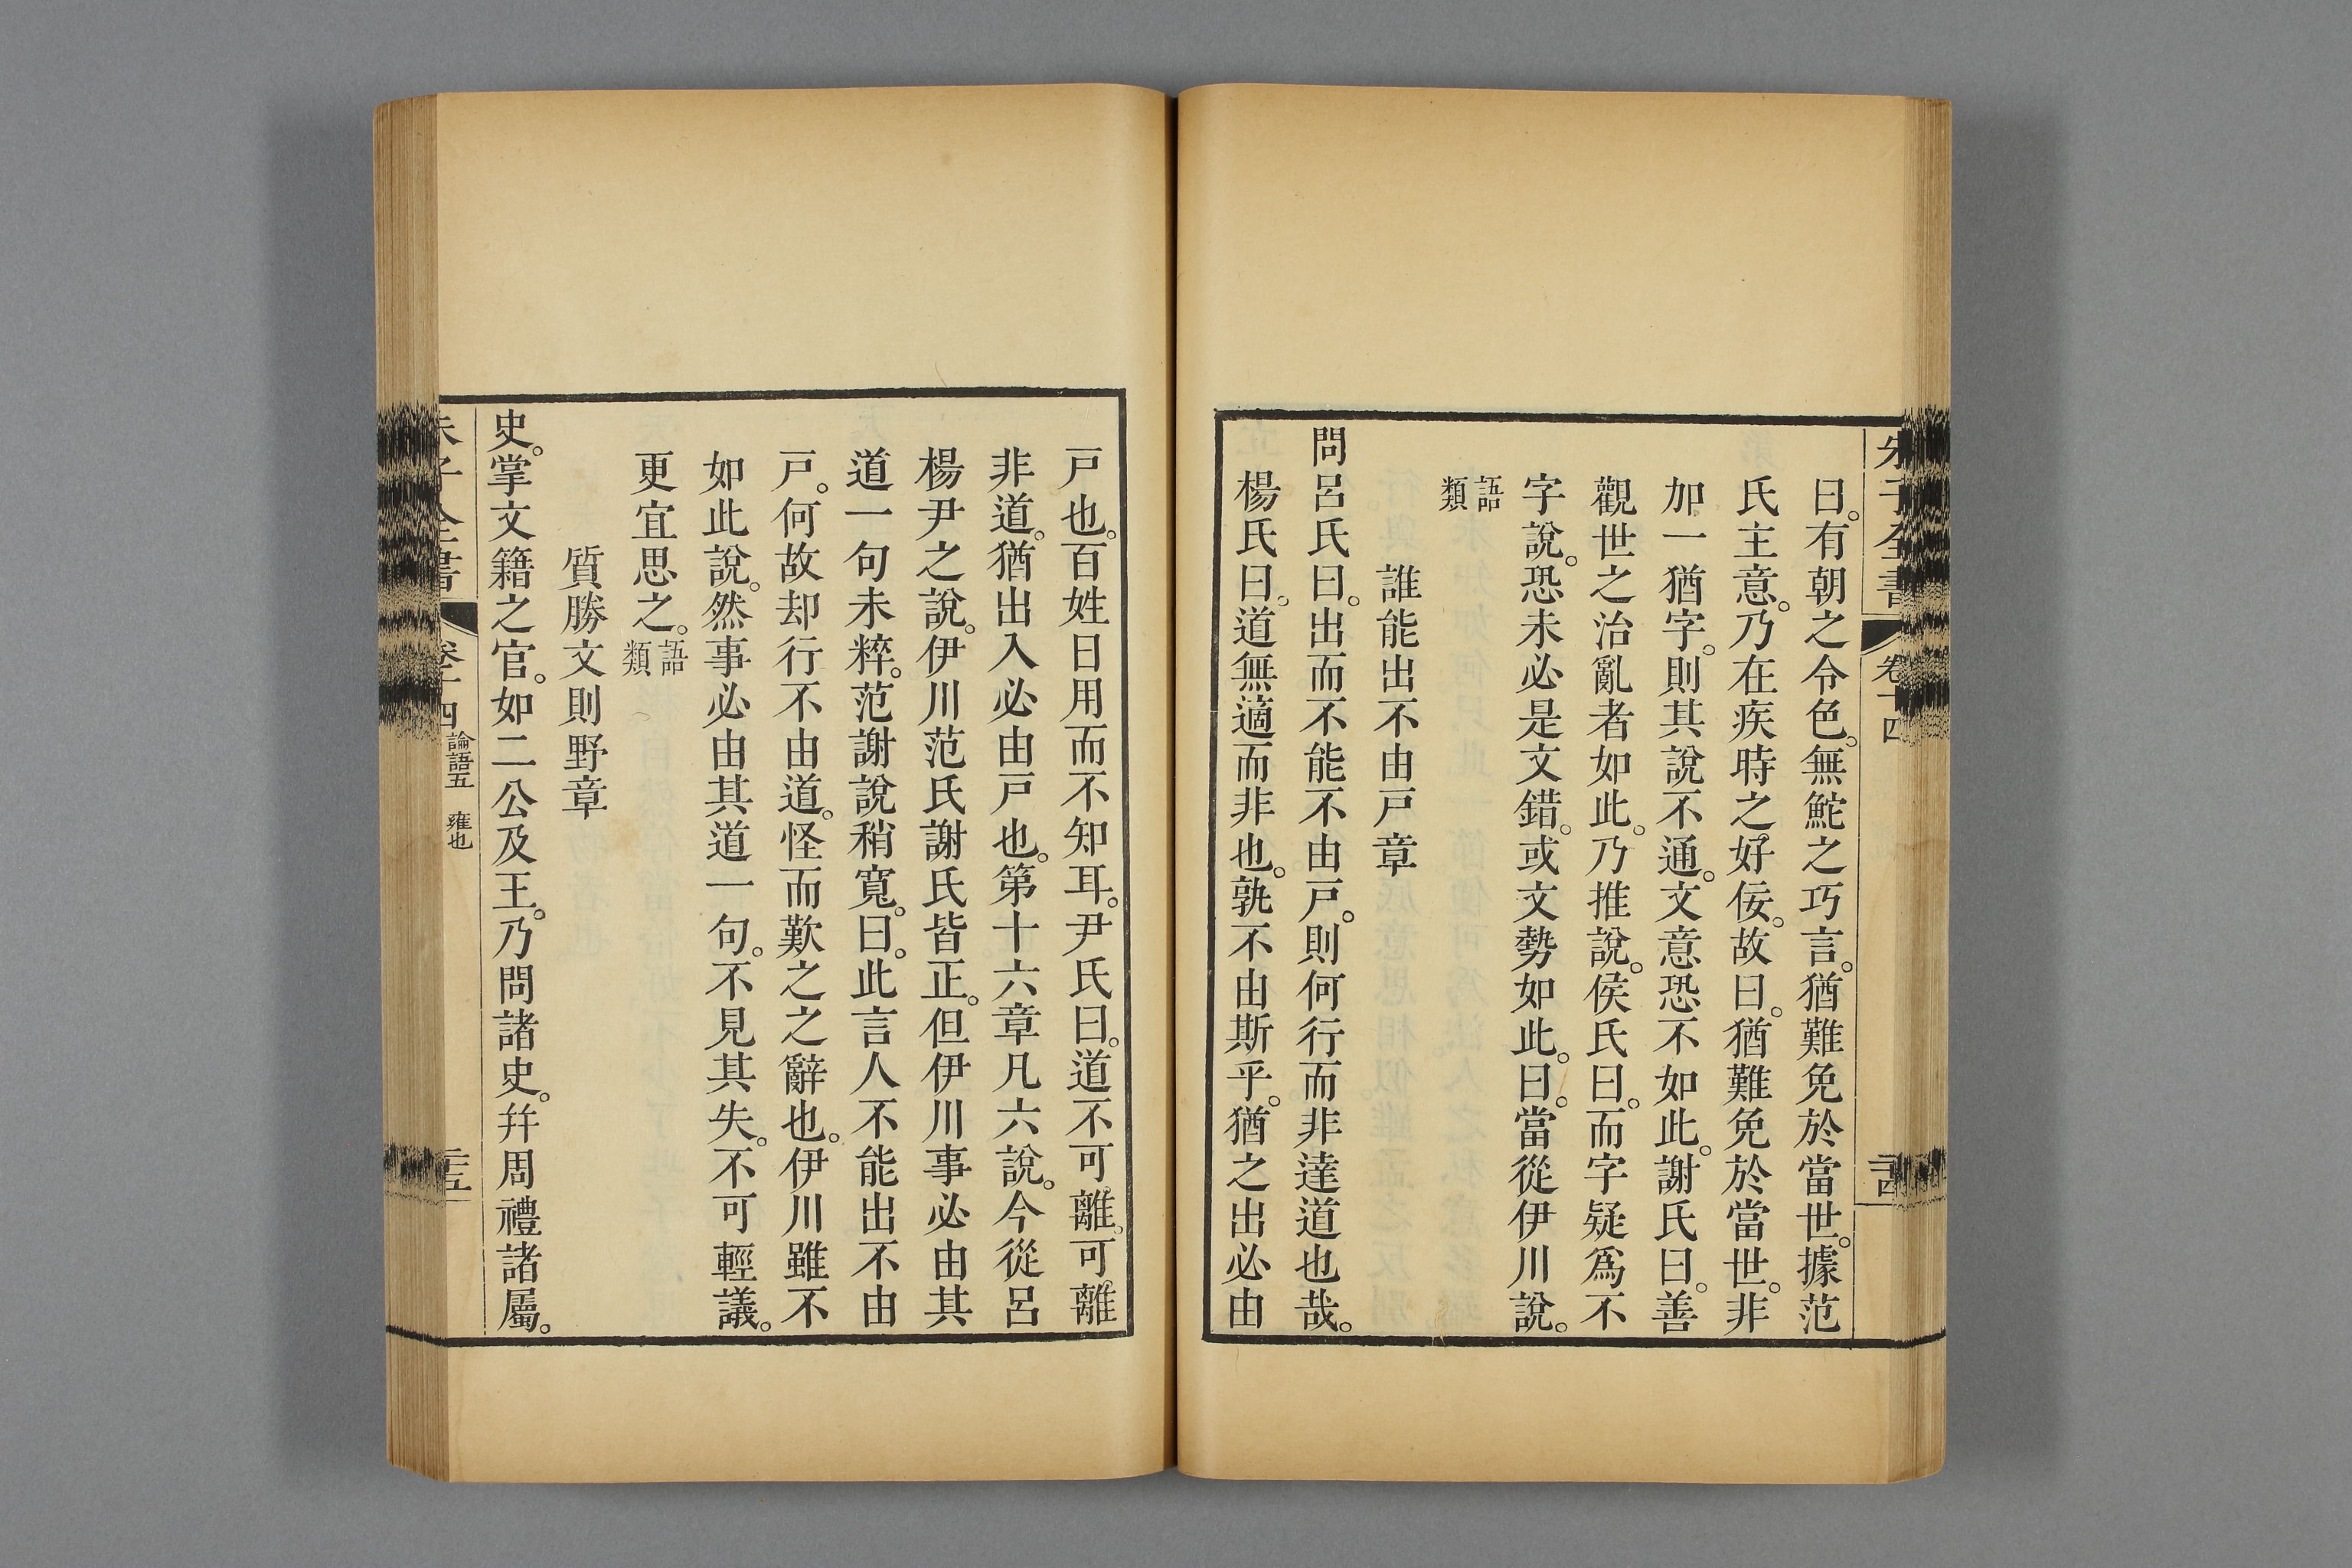 朱子全書 卷十四 三四
曰。有朝之令色。無鮀之巧言。猶難免於當世。據范
氏主意。乃在疾時之好佞。故曰。猶難免於當世。非
加一猶字。則其說不通。文意恐不如此。謝氏曰。善
觀世之治亂者如此。乃推說。侯氏曰。而字疑爲不
字說。恐未必是文錯。或文勢如此。曰。當從伊川說。
語
類
誰能出不由戸章
問呂氏曰。出而不能不由戸。則何行而非達道也哉。
楊氏曰。道無適而非也。孰不由斯乎。猶之出必由
戸也。百姓日用而不知耳。尹氏曰。道不可離。可離
非道。猶出入必由戸也。第十六章凡六說。今從呂
楊尹之說。伊川范氏謝氏皆正。但伊川事必由其
道一句未粹。范謝說稍寬。曰。此言人不能出不由
戸。何故却行不由道。怪而歎之之辭也。伊川雖不
如此說。然事必由其道一句。不見其失。不可輕議。
更宜思之。語
類
質勝文則野章
史。掌文籍之官。如二公及王。乃問諸史。幷周禮諸屬。
朱子全書 卷十四 論語五 雍也 三五